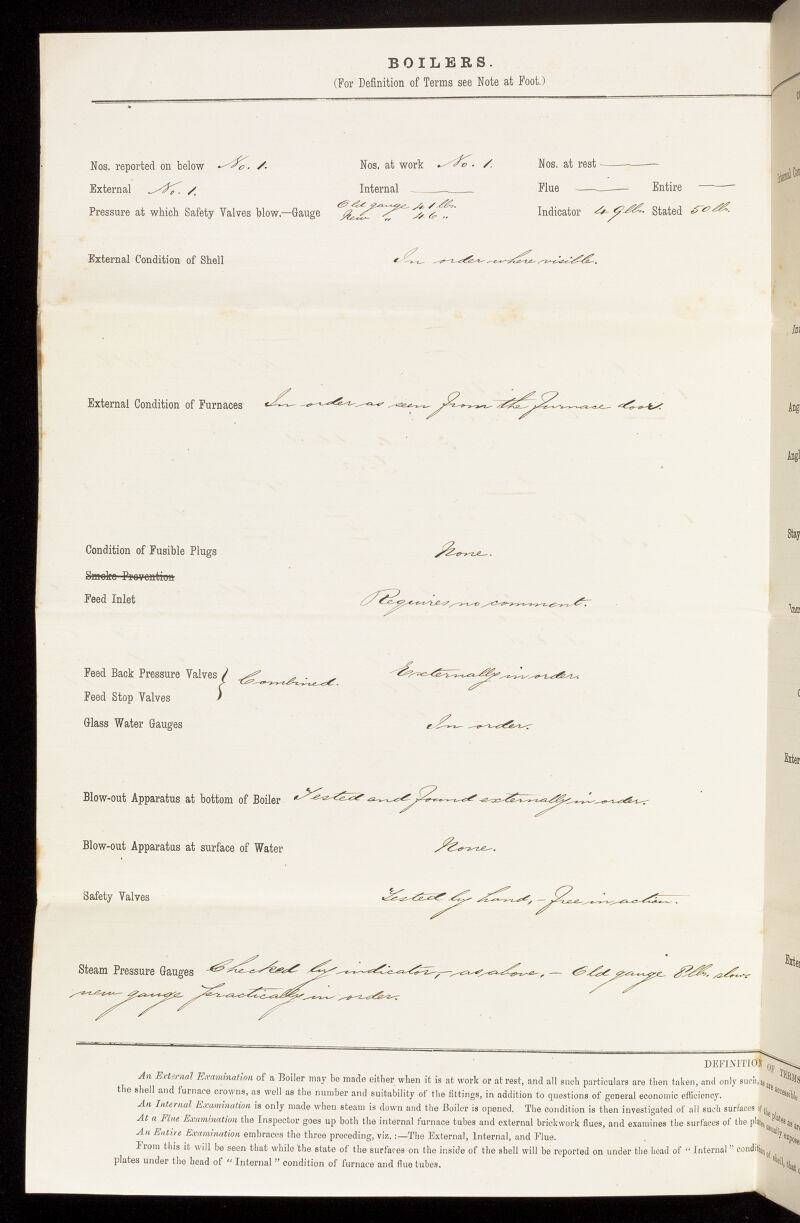 BOILERS.
(For Definition of Terms see Note at Foot.)
Nos. reported on below No. 1. Nos. at work No. 1. Nos. at rest
External No. 1. Internal Flue Entire
Pressure at which Safety Valves blow,—Gauge Old gauge 41 lbs. Indicator 49 lbs. Stated 50 lbs.
New " 46 "
External Condition of Shell In order where visible.
External Condition of Furnaces In order as seen from the furnace door.
Condition of Fusible Plugs None.
Smoke Prevention
Feed Inlet Requires no comment.
Feed Back Pressure Valves } Combined. Externally in order.
Feed Stop Valves
Glass Water Gauges In order.
Blow-out Apparatus at bottom of Boiler Tested and found externally in order.
Blow-out Apparatus at surface of Water None.
Safety Valves Tested by hand, – free in action.
Steam Pressure Gauges Checked by indicator, – as above. – Old gauge 8 lbs. slow
new gauge practically in order.
DEFINITION OF TERMS
An External Examination of a Boiler may be made either when it is at work or at rest, and all such particulars are then taken, and only such, as are accessible
the shell and furnace crowns, as well as the number and suitability of the fittings, in addition to questions of general economic efficiency.
An Internal Examination is only made when steam is down and the Boiler is opened. The condition is then investigated of all such surfaces of the plates as are
At a Flue Examination the Inspector goes up both the internal furnace tubes and external brickwork flues, and examines the surfaces of the plates usually expose
An Entire Examination embraces the three preceding, viz. :—The External, Internal, and Flue.
From this it will be seen that while the state of the surfaces on the inside of the shell will be reported on under the head of "Internal" condition of shell, that
plates under the head of "Internal" condition of furnace and flue tubes.